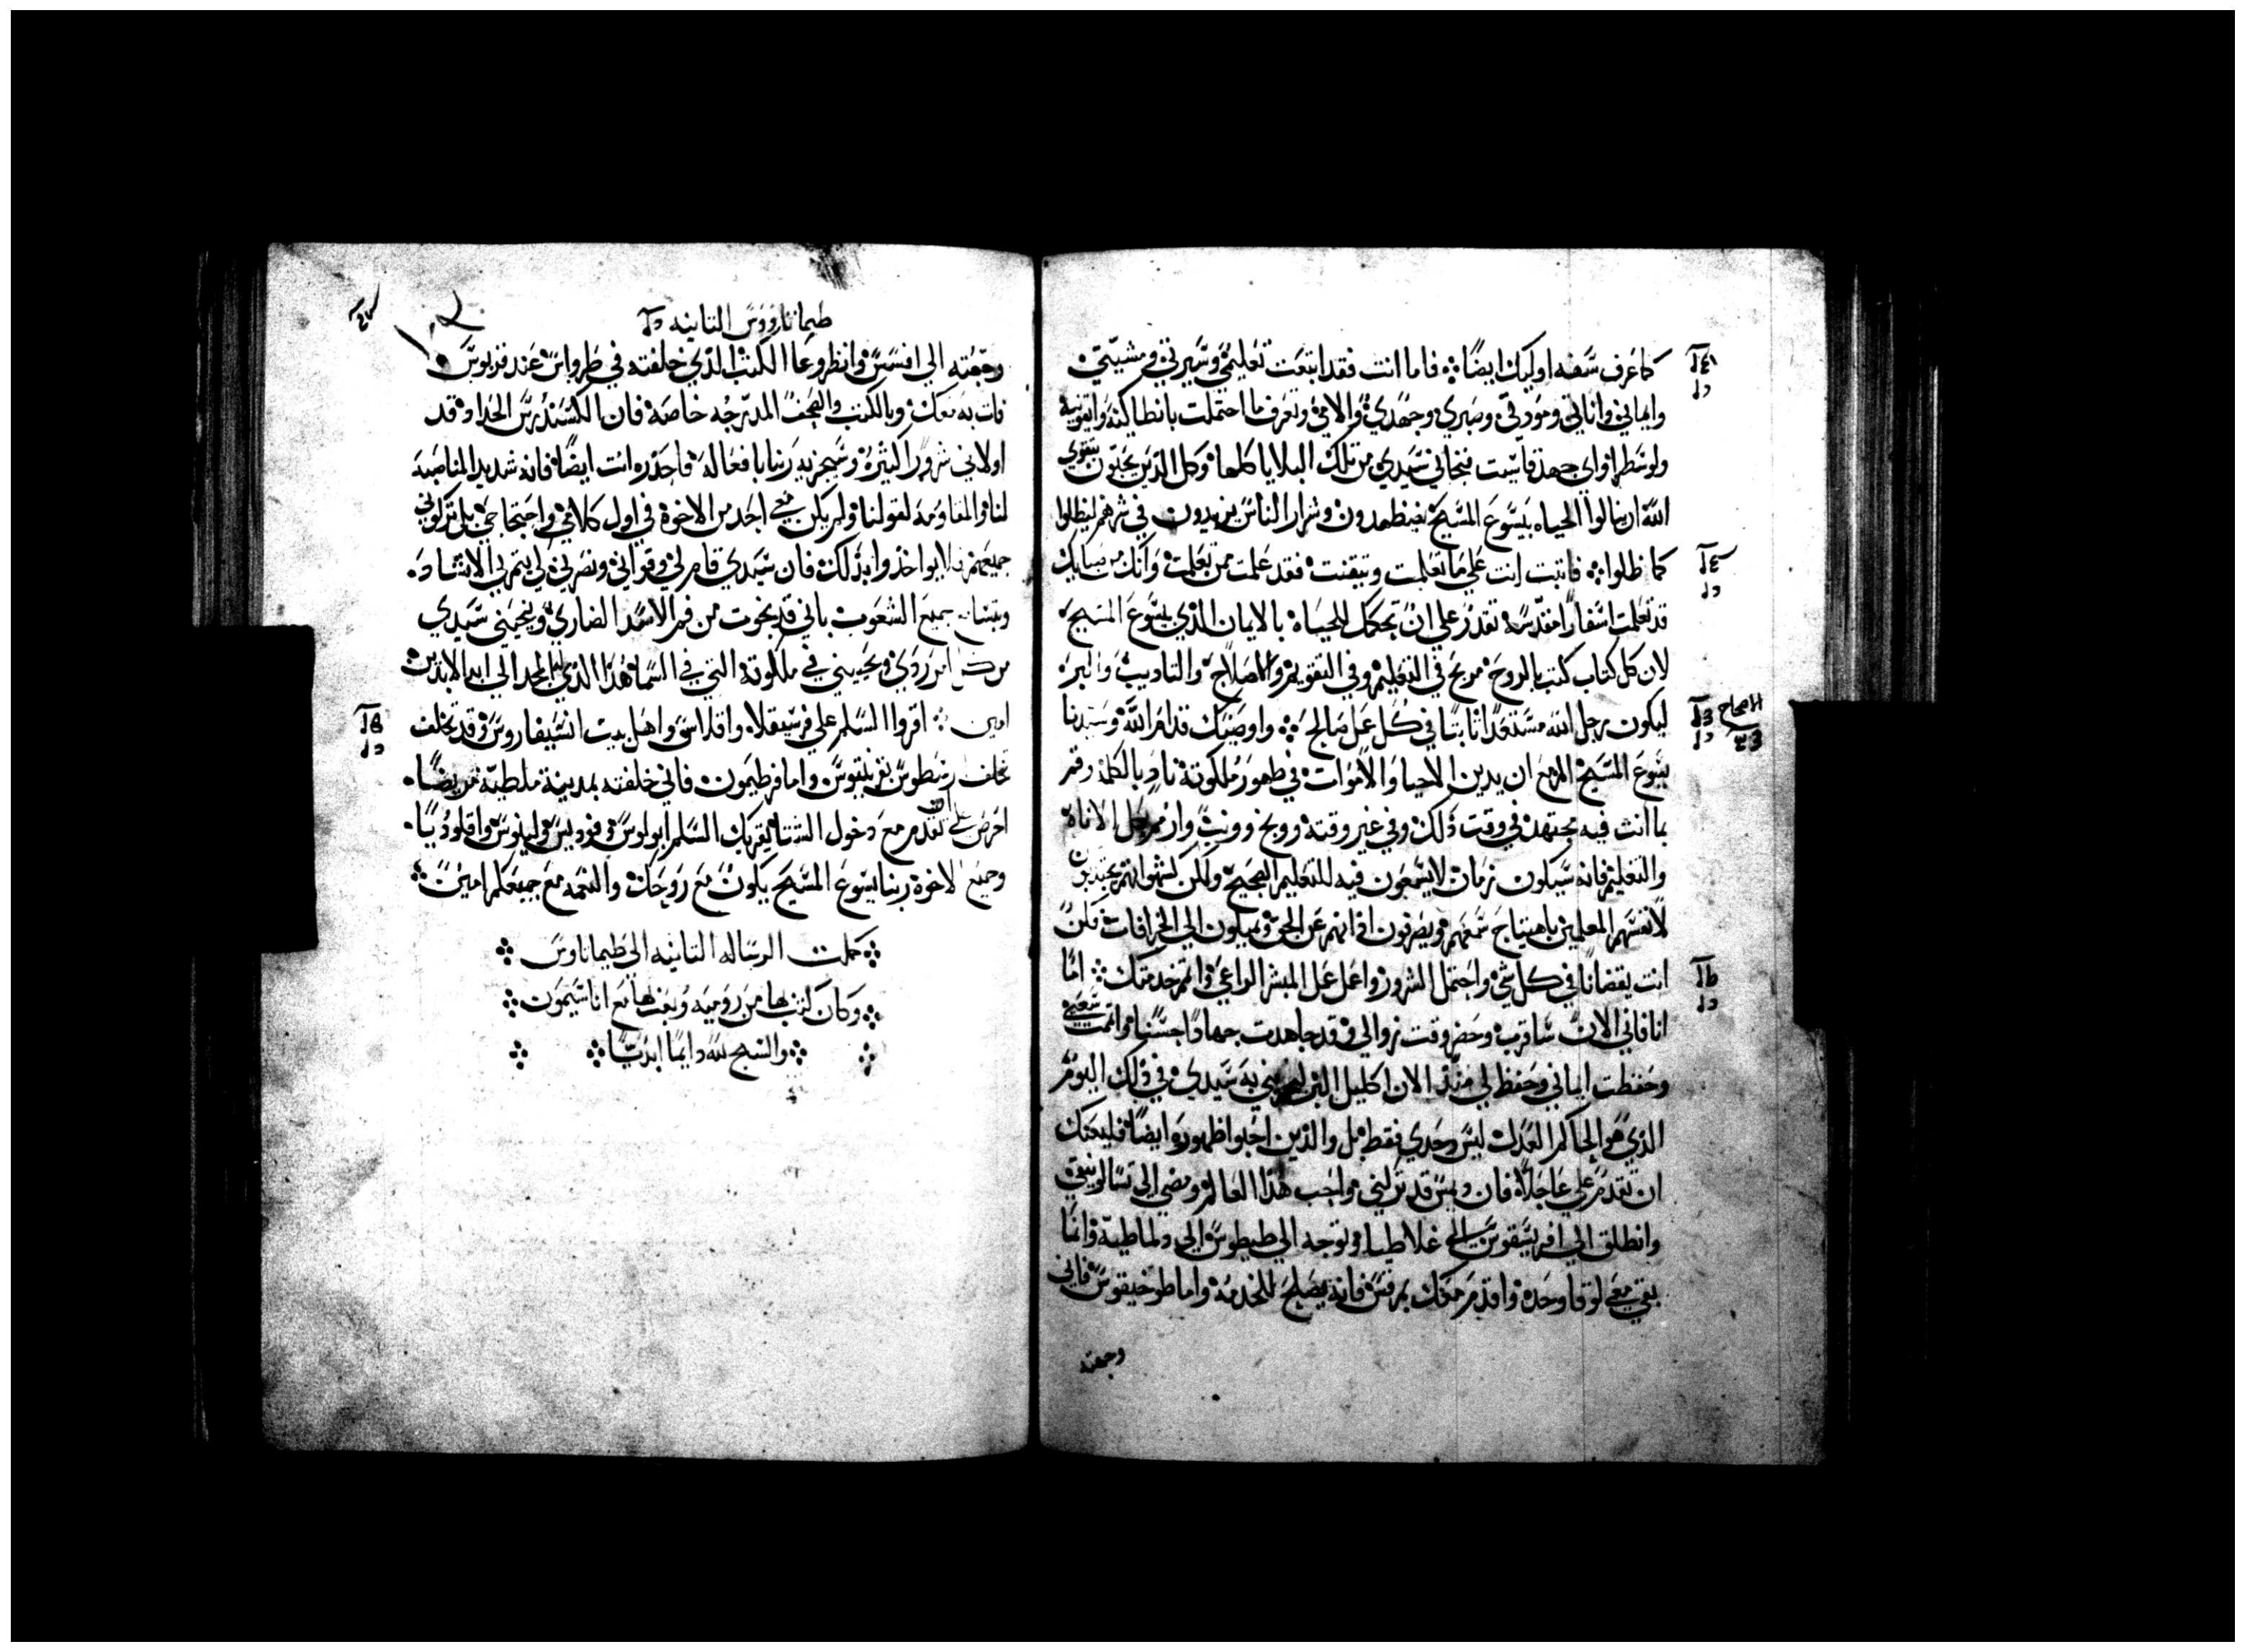 كما عرف سفه اوليك ايضًا فاما انت فقد اتبعت تعليمي وسيرتي ومشيتي
وايماني واناتي ومودتي وصبري وجهدي والامي وتعرف ما احتملت بانطاكية وايقونية
ولوسطرا واي جهد قاسيت فنجاني سيدي من تلك البلايا كلها وكل الذين يحبون بتقوي
الله ان ينالوا الحياه بيسوع المسيح يضطهدون وشرار الناس يزيدون في شرهم ليظلوا
كما ظلوا فاثبت انت علي ما تعلمت وتيقنت فقد علمت ممن تعلمت وانك من صباك
قد تعلمت اسفارًا مقدسة تقدر علي ان تحكمك للحياة بالايمان الذي بيسوع المسيح
لان كل كتاب كتب بالروح مربح في التعليم وفي التقويم والصلاح والتاديب والبر
ليكون رجل الله مستعدًا ثابتًا في كل عمل صالح واوصيك قدام الله وسيدنا
الاصحاح
يسوع المسيح المزمع ان يدين الاحيا والاموات في ظهور ملكوته ناد بالكلمة وقم
بما انت فيه مجتهد في وقت ذلك وفي غير وقته وبخ وونب وارسم بكل الاناة
والتعليم فانه سيكون زمان لا يسمعون فيه للتعليم الصحيح ولكن كشهواتهم يجتذبون
لانفسهم المعلمين باهتياج سمعهم ويصرفون اذانهم عن الحق ويميلون الي الخرافات فكن
انت يقضانًا في كل شي واحتمل الشرور واعمل عمل المبشر الواعي واتمم خدمتك اما
انا فاني الان ساقرب وحضر وقت زوالي وقد جاهدت جهادًا حسنًا واتممت سعيي
وحفظت ايماني وحفظ لي منذ الان اكليل البر ليجزيني به سيدي في ذلك اليوم
الذي هو الحاكم العدل ليس وحدي فقط بل والذين احبوا ظهوره ايضًا فليعنك
ان تقدم علي عاجلاً فان ديمس قد تركني واحب هذا العالم ومضي الي تسالونيقي
وانطلق الي افريسقوس الي غلاطيا وتوجه الي طيطوس الي دلماطية وانما
بقي معي لوقا وحده واقدم معك بمرقس فانه يصلح للخدمة واما طوخيقوس فاني
وجهته
طيماثاووس الثانيه
وجهته الي افسس وانظر وعا الكتب الذي خلفته في طرواس عند قربوس
فات به معك وبالكتب والصحف المدرجه خاصة فان الكسندرس الحداد قد
اولاني شرورًا كثيرة وسيجزيه ربنا بافعاله فاحذره انت ايضًا فانه شديد المناصبة
لنا والمقاومة لقولنا ولم يكن معي احد من الاخوة في اول كلامي واحتجاجي بل تركوني
جميعهم فلا يواخذوا بذلك فان سيدي قام لي وقواني ونصرني لي يتم بي الانشاد
وبتسامع جميع الشعوب باني قد نجوت من فم الاسد الضاري وينجيني سيدي
من كل امر ردي ويحييني في ملكوته التي في السما هذا الذي له المجد الي ابد الابدين
امين اقروا السلم علي فرسيقلا واقلاس واهل بيت انسيفاروس وقد تخلف
تخلف رسطوس بقرنثيوس واما فرطيمون فاني خلفته بمدينة ملطية مريضًا
احرص علي ان تقدم مع دخول الشتا يقريك السلم ابولوس وفوديس ولينوس واقلوديا
وجميع الاخوة ربنا يسوع المسيح يكون مع روحك والنعمه مع جميعكم امين
كملت الرساله الثانيه الي طيماثاوس
وكان كتب بها من روميه وبعث بها مع اناسيمون
والسبح لله دايمًا ابديًا